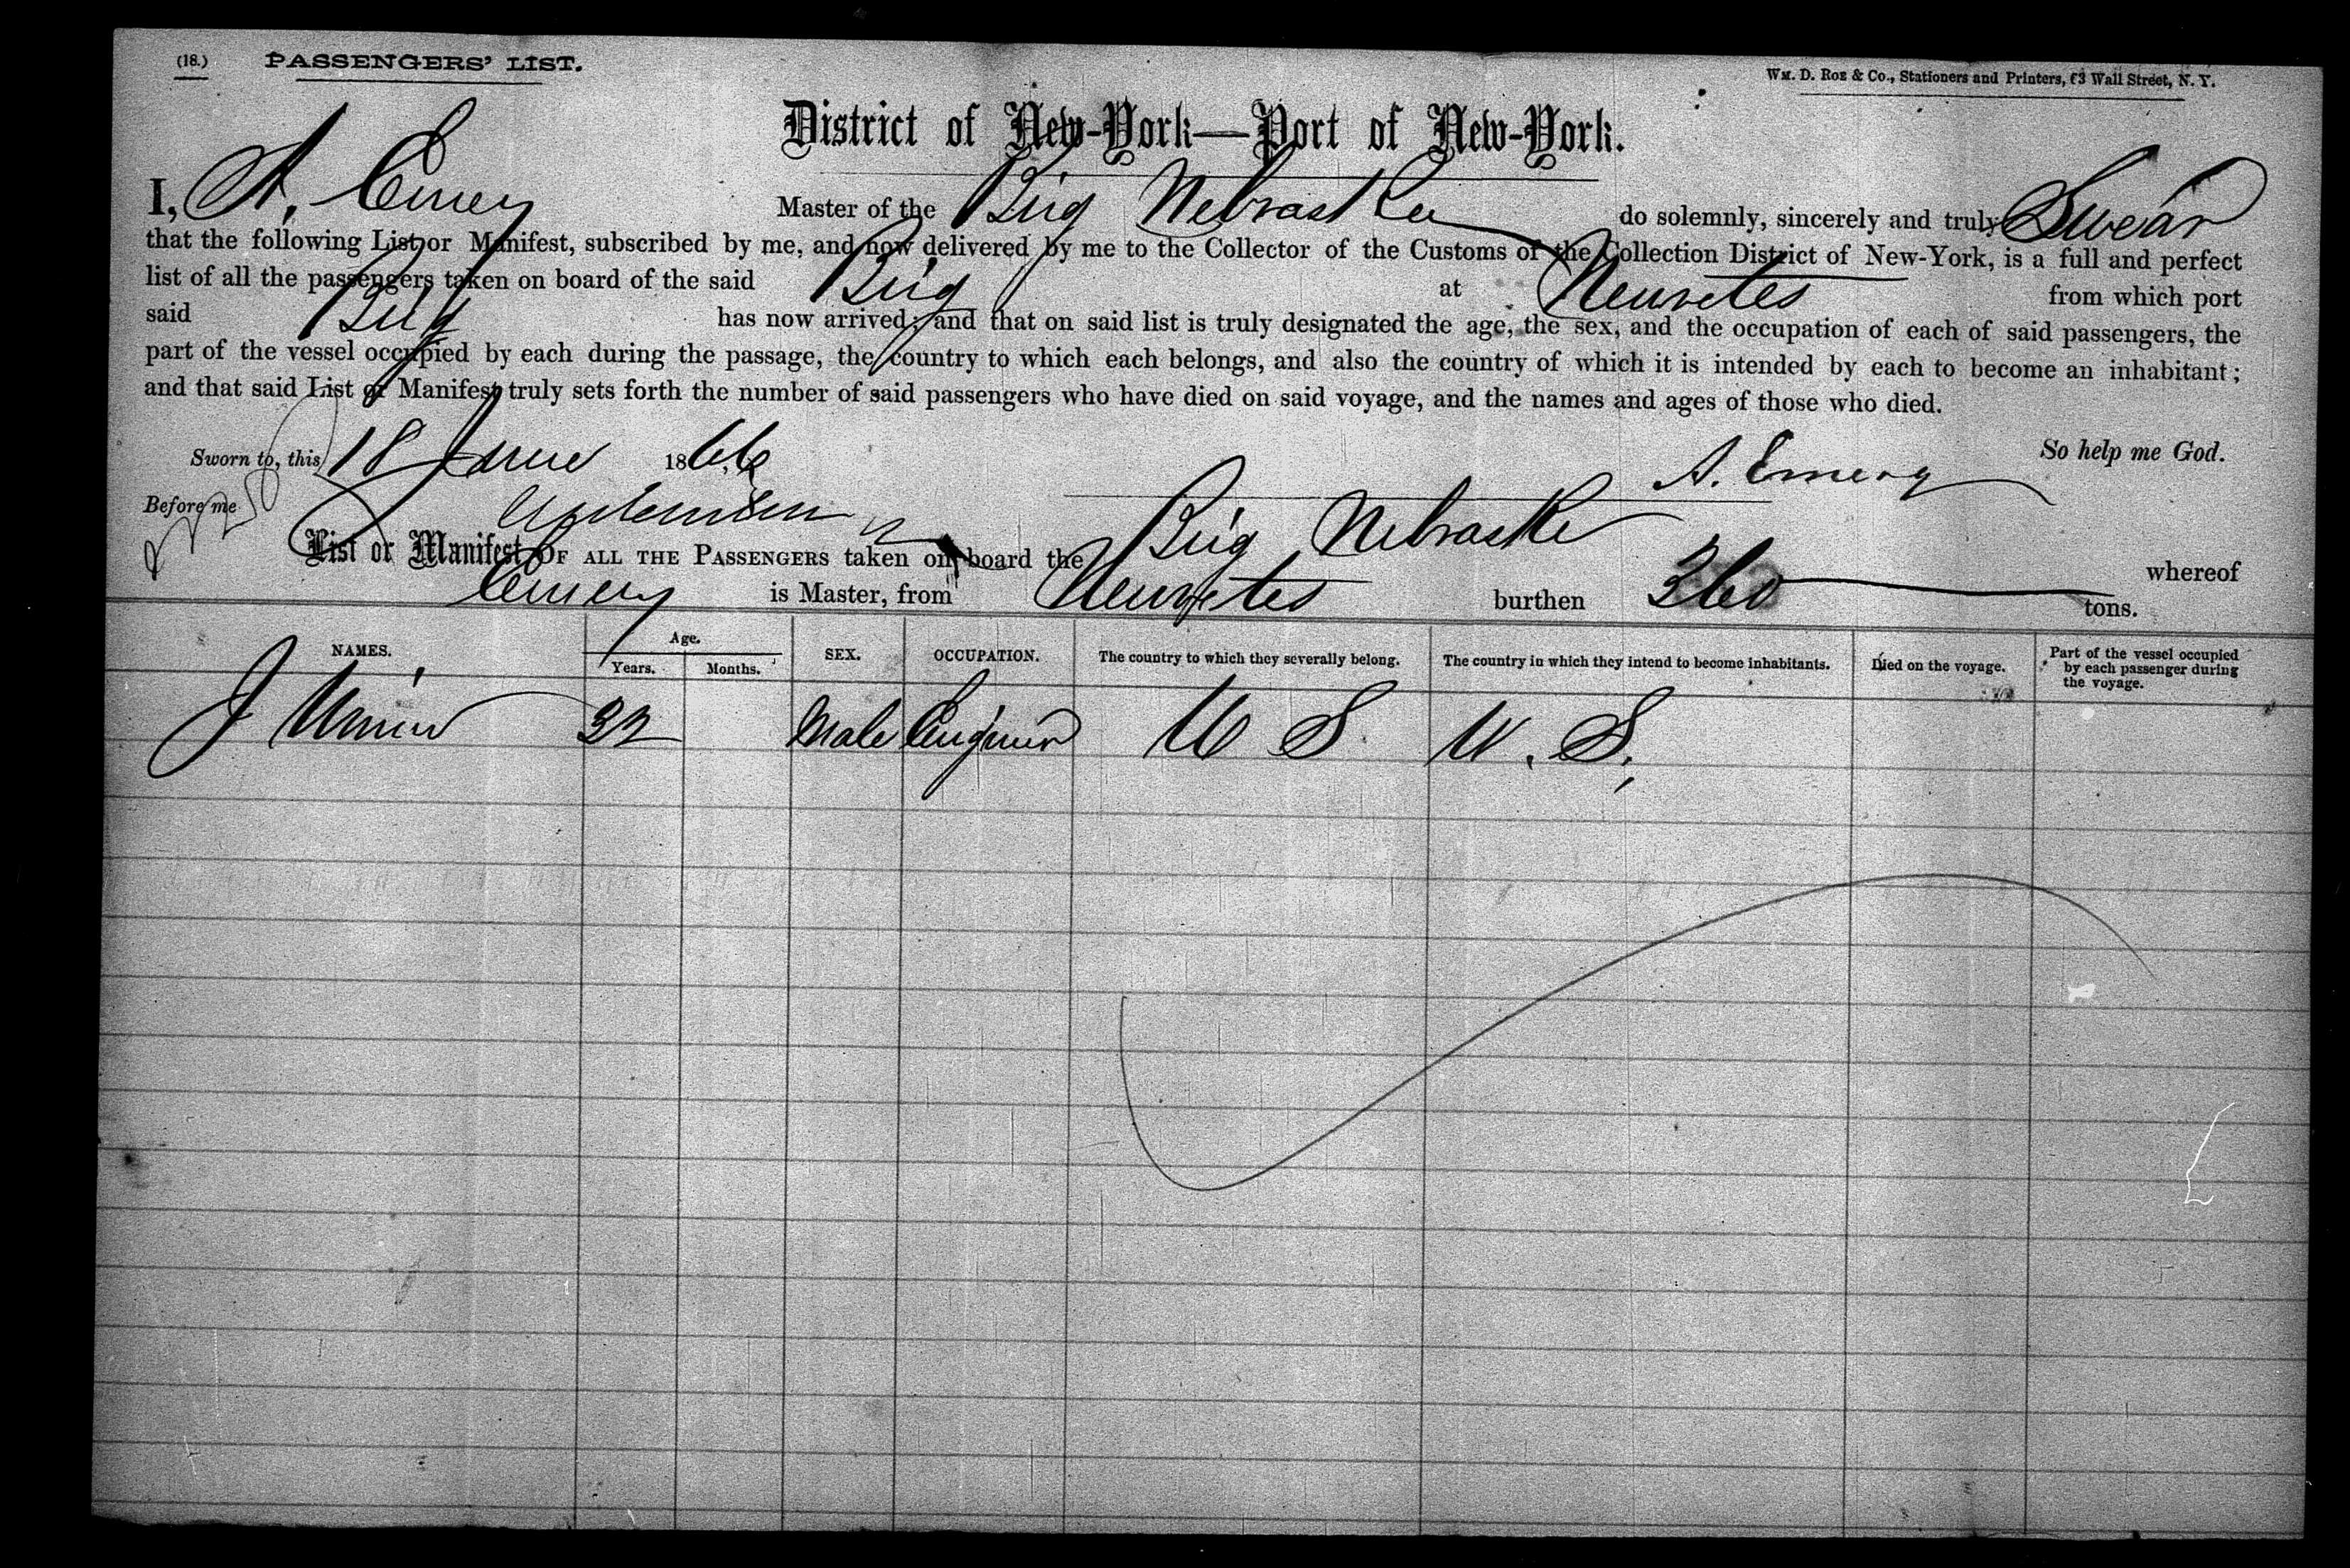 (18.) PASSENGERS' LIST.
Wm. D. Roe & Co., Stationers and Printers, 63 Wall Street, N. Y.
District of New-York—Port of New-York.
I, A. Emery Master of the Brig Nebraska do solemnly, sincerely and truly Swear
that the following List or Manifest, subscribed by me, and now delivered by me to the Collector of the Customs of the Collection District of New-York, is a full and perfect
list of all the passengers taken on board of the said Brig at Neuvetes from which port
said Brig has now arrived; and that on said list is truly designated the age, the sex, and the occupation of each of said passengers, the
part of the vessel occupied by each during the passage, the country to which each belongs, and also the country of which it is intended by each to become an inhabitant;
and that said List or Manifest truly sets forth the number of said passengers who have died on said voyage, and the names and ages of those who died.
Sworn to, this 18 June 1866 So help me God.
A. Emery
Before me
List or Manifest OF ALL THE PASSENGERS taken on board the Brig Nebraska whereof
Emery is Master, from Neuvetes burthen 360 tons.
NAMES. Age. Years. Months. SEX. OCCUPATION. The country to which they severally belong. The country in which they intend to become inhabitants. Died on the voyage. Part of the vessel occupied by each passenger during the voyage.
J 32 Male Engineer U S. U. S.